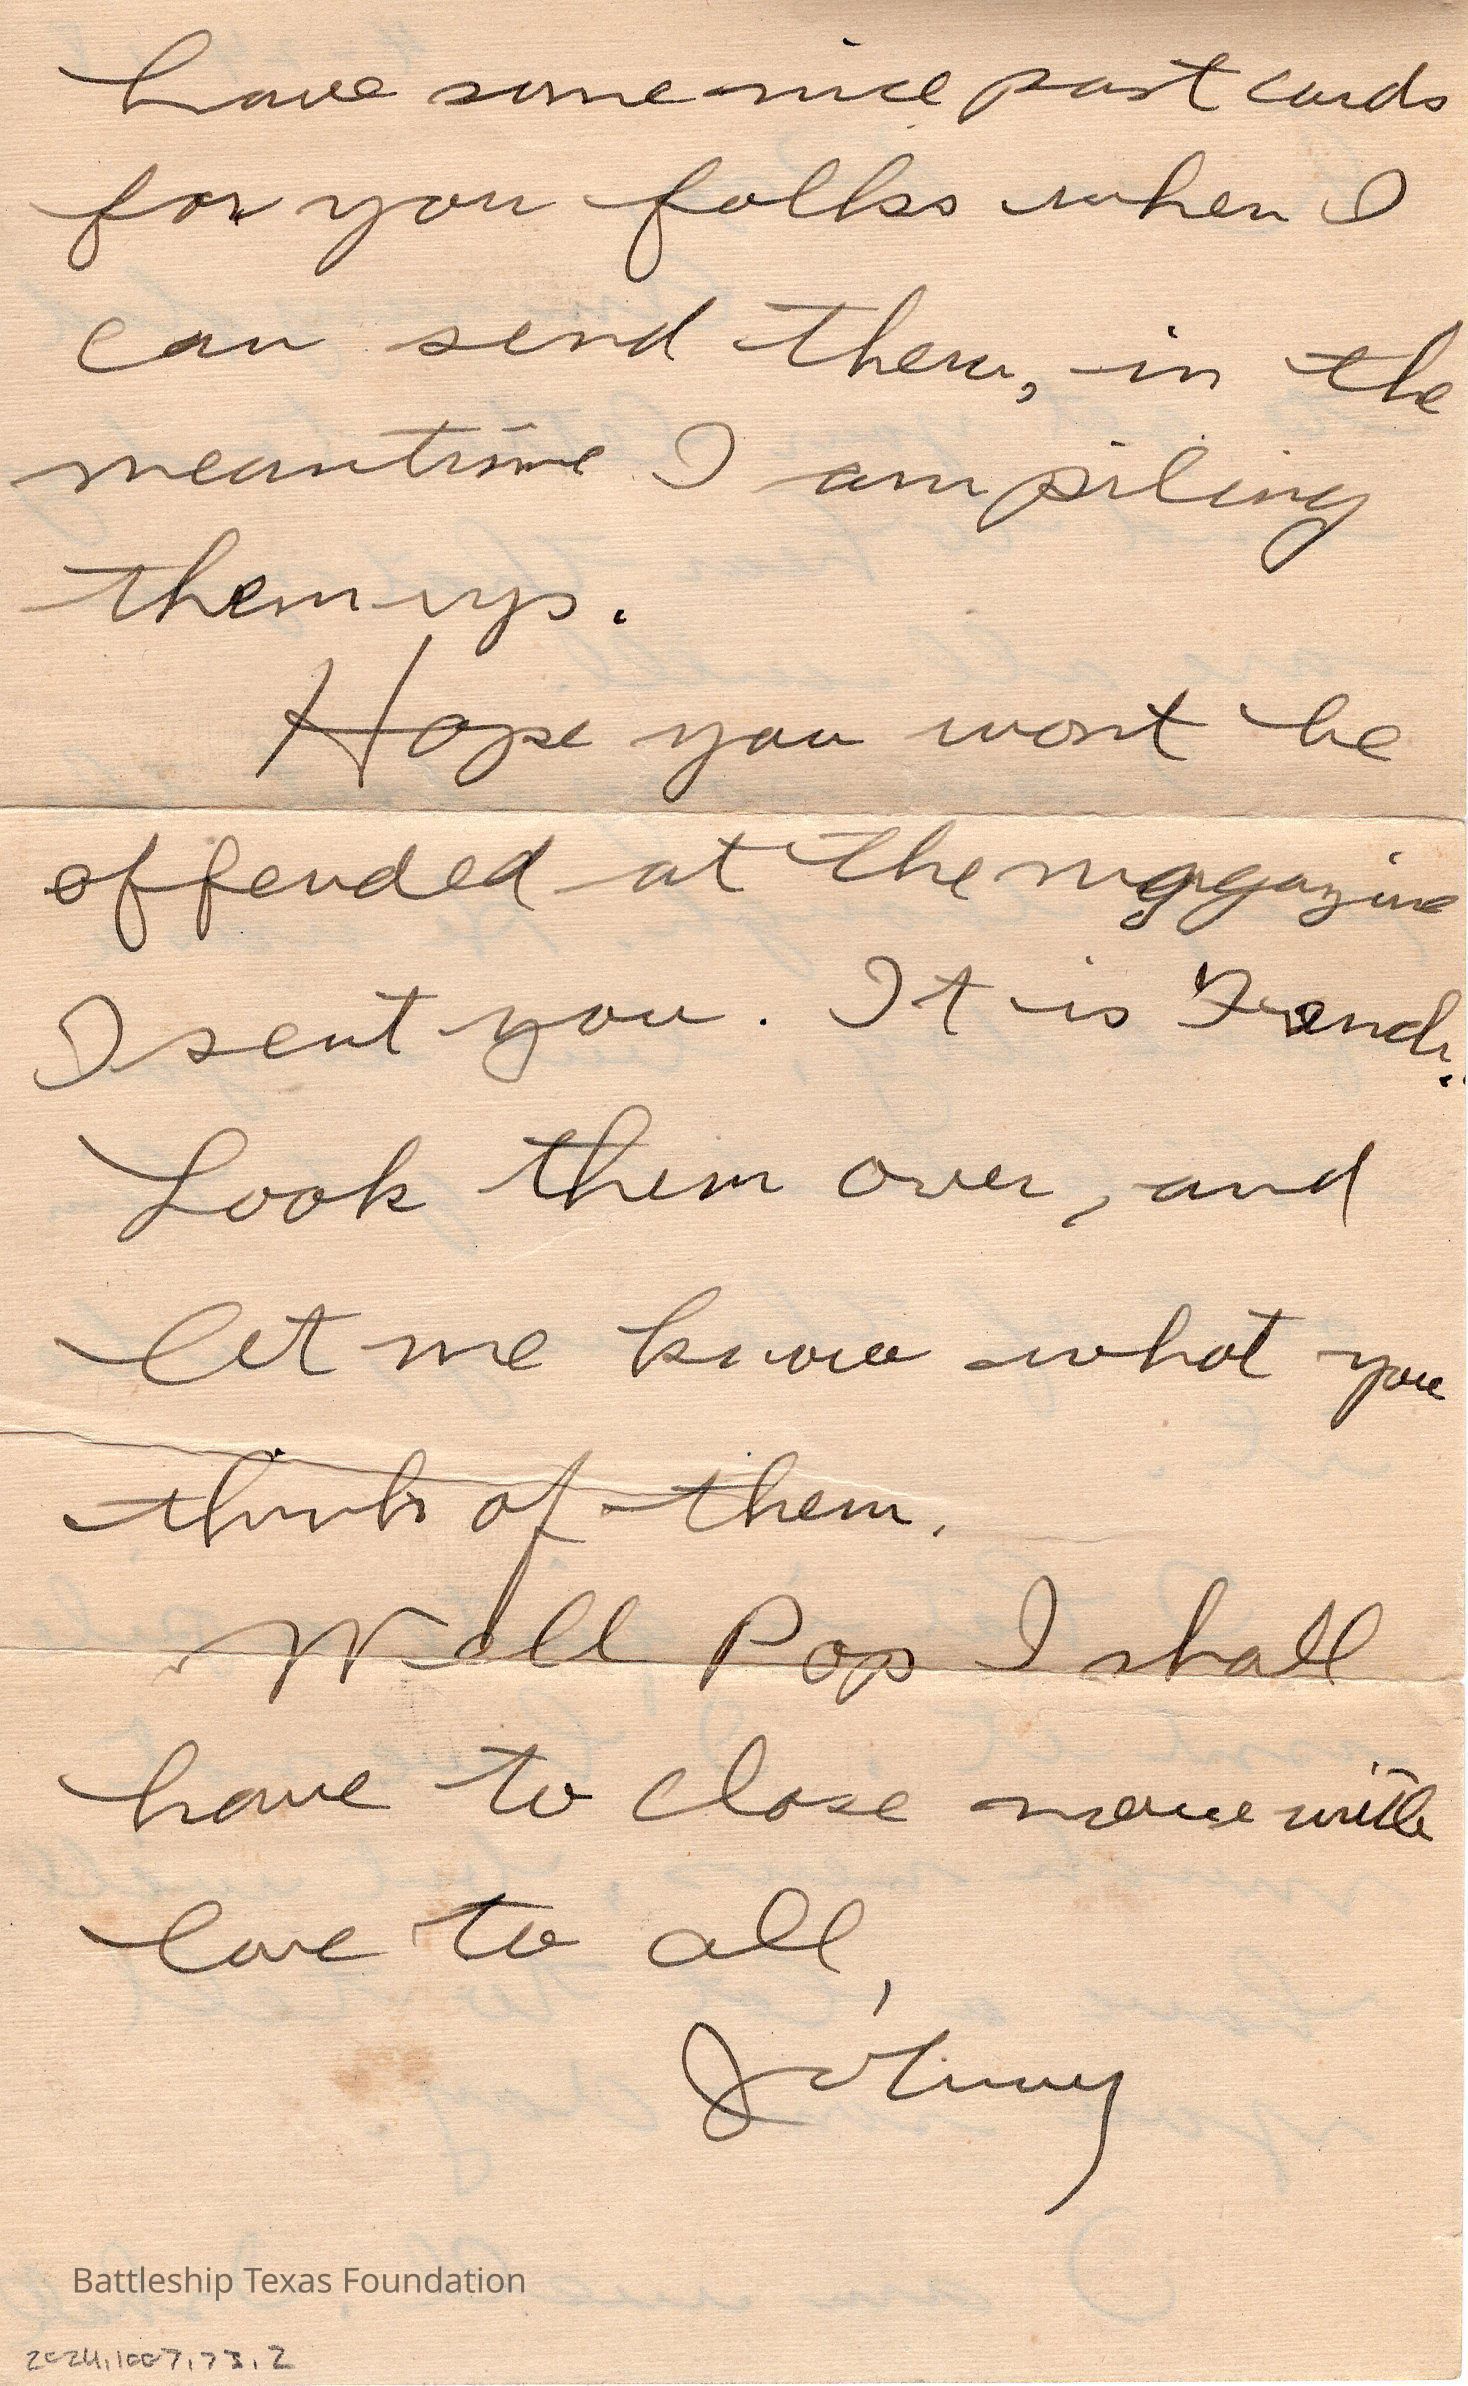 have some nice post cards
for you folks when I
can send them, in the
meantime I am piling
them up.
Hope you wont be
offended at the magazine
I sent you. It is French.
Look them over, and
let me know what you
think of them.
Well Pop I shall
have to close now with
love to all,
Johnny
Battleship Texas Foundation
2024.1007.73.2